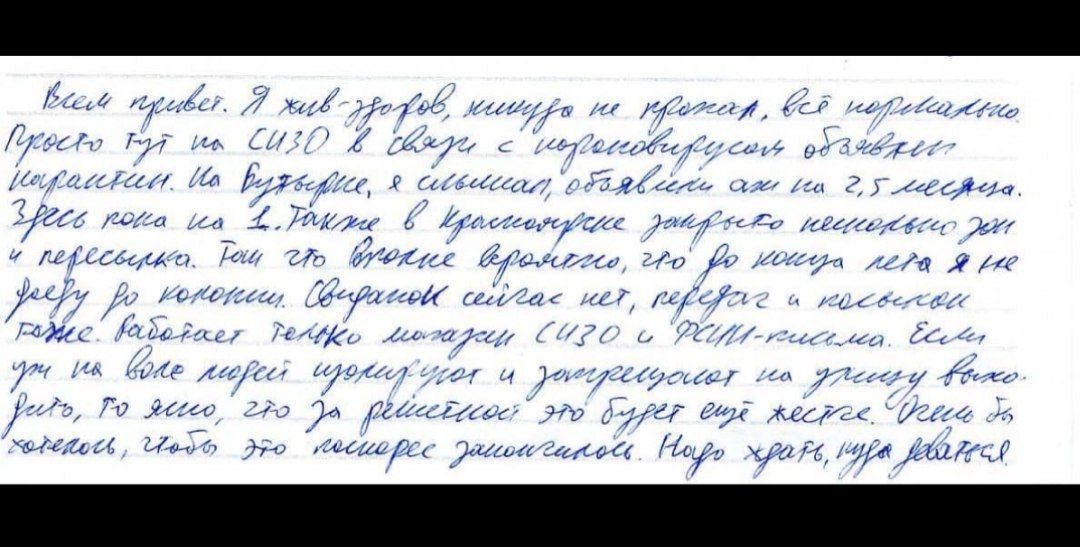 Всем привет. Я жив-здоров, никуда не пропал, всё нормально.
Просто тут на СИЗО в связи с коронавирусом объявлен
карантин. На Бутырке, я слышал, объявили аж на 2,5 месяца.
Здесь пока на 1. Также в Красноярске закрыто несколько зон
и пересылка. Так что вполне вероятно, что до конца лета я не
доеду до колонии. Свиданок сейчас нет, передач и посылок
тоже. Работает только магазин СИЗО и ФСИН-письма. Если
уж на воле людей изолируют и запрещают на улицу выхо-
дить, то ясно, что за решеткой это будет ещё жестче. Очень бы
хотелось, чтобы это поскорее закончилось. Надо ждать, куда деваться.